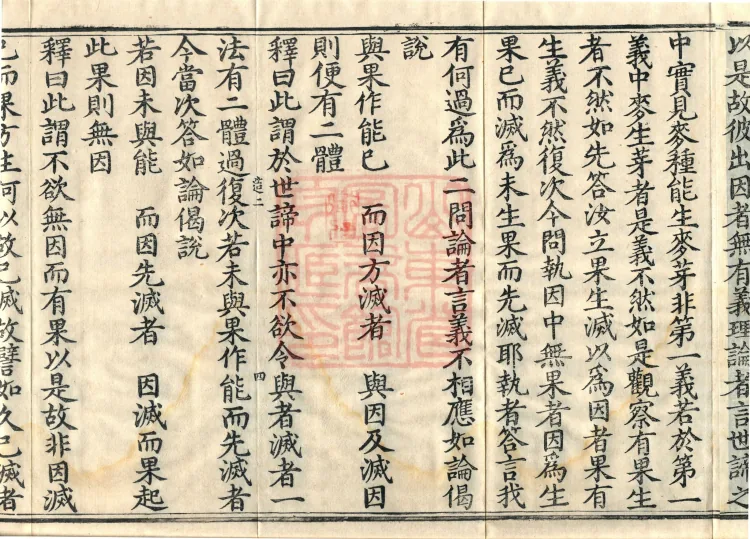 以是故彼出因者無有義理論者言世諦之
中實見麥種能生麥芽非第一義若於第一
義中麥生芽者是義不然如是觀察有果生
者不然如先答汝立果生滅以為因者果有
生義不然復次今問執因中無果者因為生
果已而滅為未生果而先滅耶執者答言我
有何過為此二問論者言義不相應如論偈
說
與果作能已　而因方滅者　與因及滅因
則便有二體
釋曰此謂於世諦中亦不欲令與者滅者一
法有二體過復次若未與果作能而先滅者
今當次答如論偈說
若因未與能　而因先滅者　因滅而果起
此果則無因
釋曰此謂不欲無因而有果以是故非因滅
已而果方生何以故已滅故譬如久已滅者